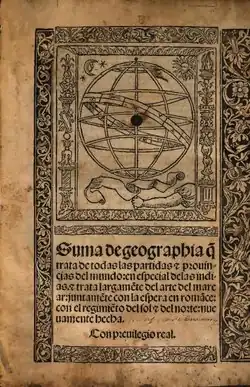 Suma de geographia q̃
trata de todas las partidas ⁊ prouin-
cias del mundo: en especial de las indi-
as. ⁊ trata largamẽte del arte del mare
ar: juntamẽte con la espera en romãce:
con el regimiẽto del sol ⁊ del norte: nue
uamente hecha.
Con preuilegio real.